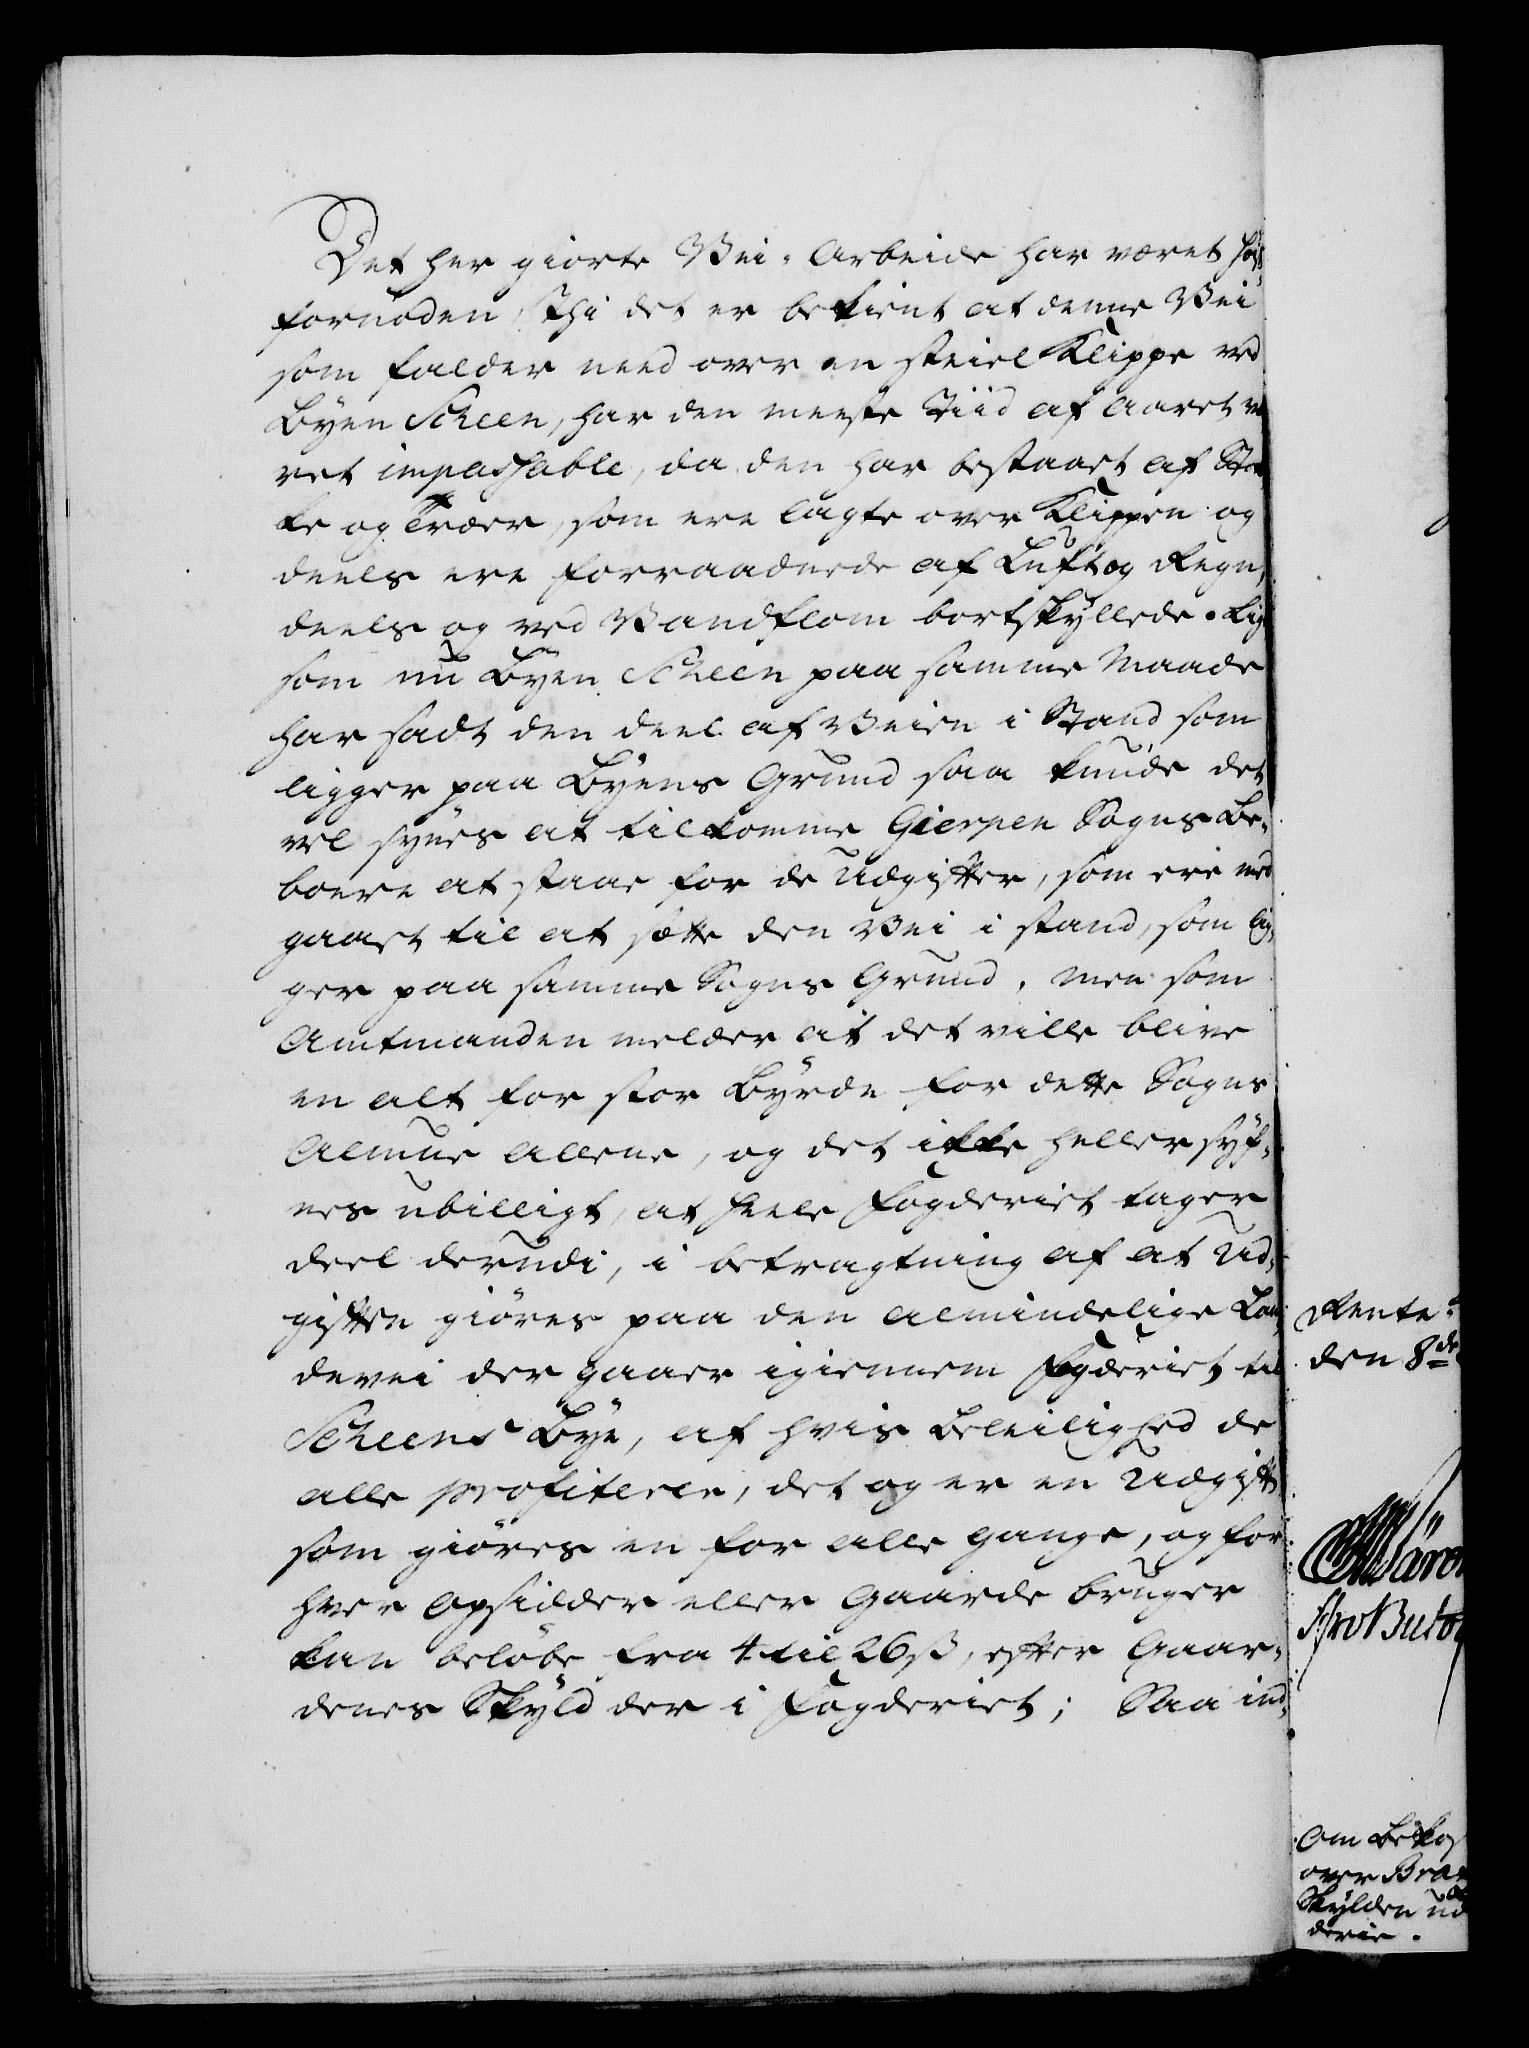 Det her giorte Vei-Arbeide har været høi
fornøden, Thi det er bekient at denne Vei
som falder need over en steiel Klippe ved
Byen Scheen, har den meeste Tiid af Aaret væ
ret impassable, da den har bestaaet af Stok
ke og Træer, som ere lagte over Klippen og
deels ere forraadnede af Luft og Regn,
deels og ved Vandflom bortskyllede. Lige
som nu Byen Scheen paa samme Maade
har sadt den deel af Veien i Stand som
ligger paa Byens Grund saa kunde det
vel synes at tilkomme Gierpen Sogns Be-
boere at staae for de Udgifter, som ere med
gaaet til at sette den Vei i stand, som lig
ger paa samme Sogns Grund. Men som
Amtmanden melder at det ville blive
en alt for stor Byrde for dette Sogns
Almue allene, og det ikke heller syn-
nes ubilligt, at heele Fogderiet tager
deel derudi, i betragtning af at Ud-
giften giøres paa den almindelige Lan
devei der gaaer igiennem Fogderiet til
Scheens Bye, af hvis Beleilighed de
alle profiterer, det og er en Udgift
som giøres en for alle gange, og for
hver Opsidder eller Gaarde bruger
kan beløbe fra 4 til 26 ß, efter Gaar-
denes Skyld der i Fogderiet; Saa ind-
Rente-
den 8de
Om Bekos
over Bra
Skylden ud
derie.